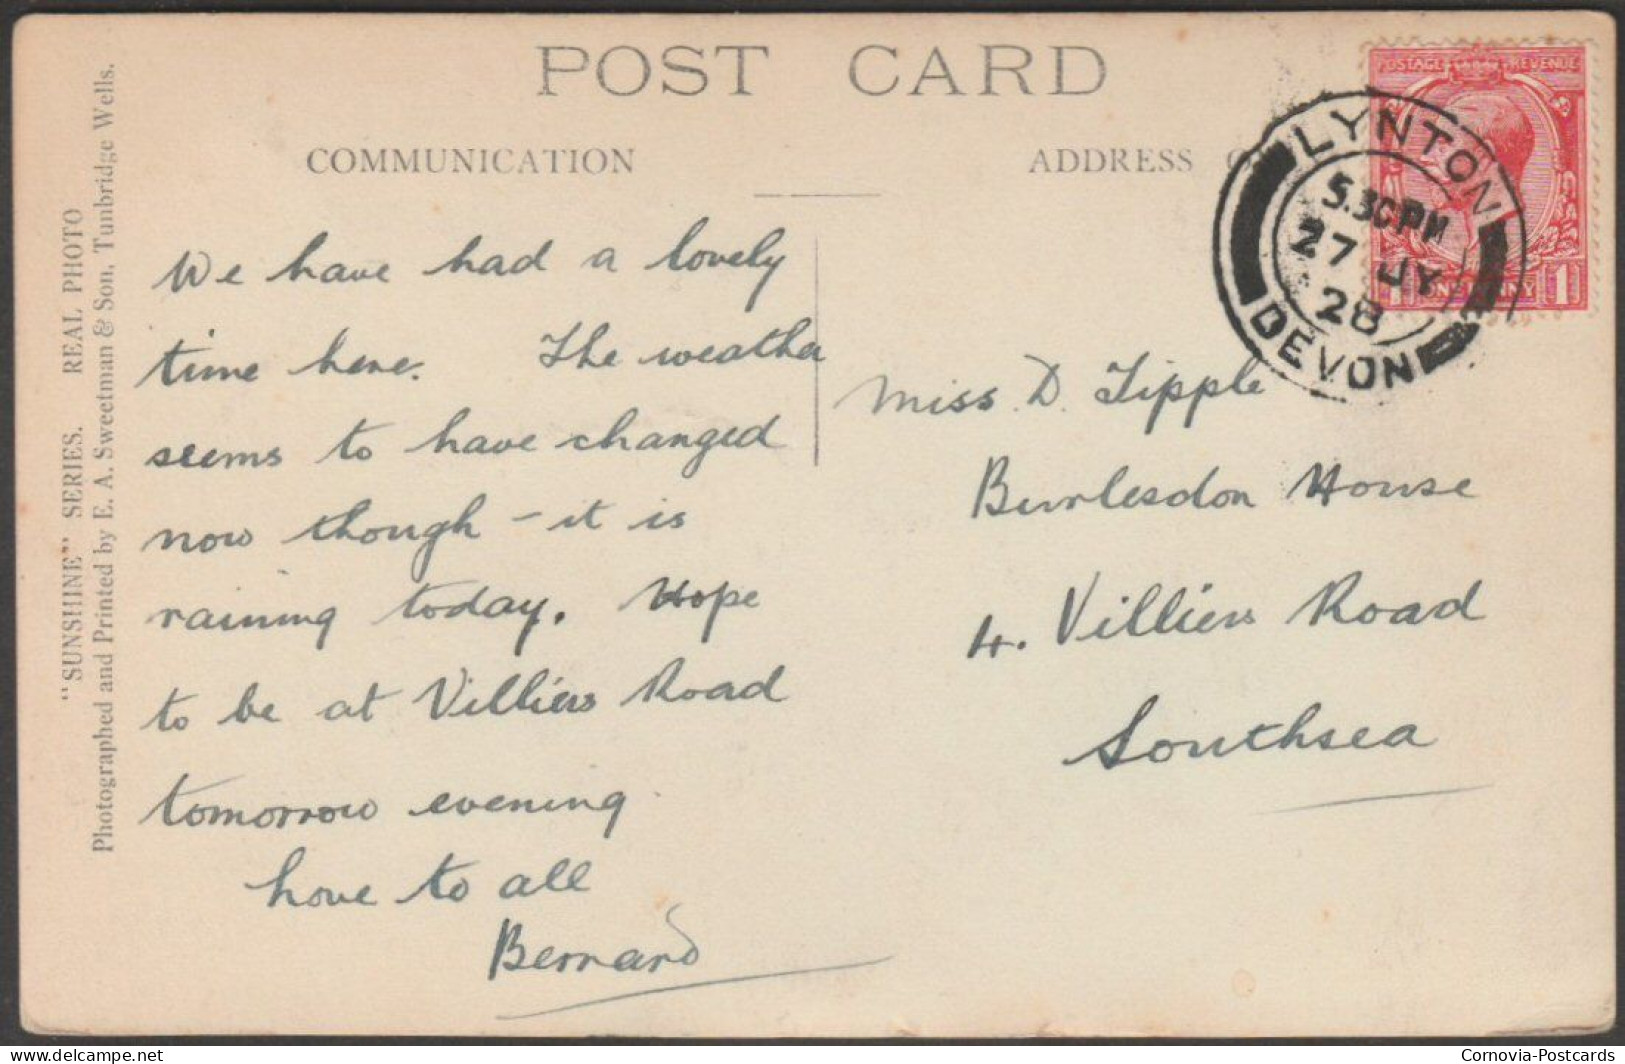 POST CARD
COMMUNICATION
ADDRESS
"SUNSHINE" SERIES. REAL PHOTO
Photographed and Printed by E. A. Sweetman & Son, Tunbridge Wells.
We have had a lovely
time here. The weather
seems to have changed
now though - it is
raining today. Hope
to be at Villiers Road
tomorrow evening.
Love to all
Bernard
POSTAGE REVENUE
LYNTON
5.30PM
27 JY
28
DEVON
1
Miss. D. Tipple
Burlesdon House
4. Villiers Road
Southsea
Cornovia-Postcards
delcampe.net